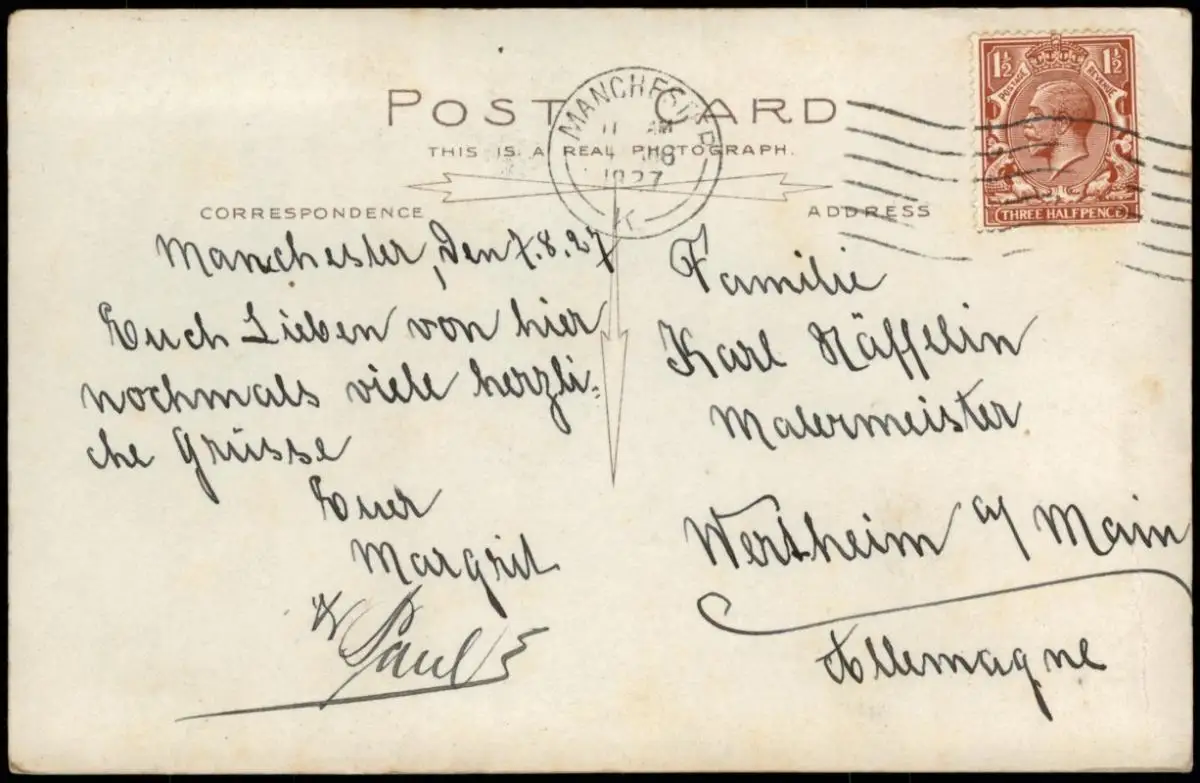 POST CARD
THIS IS A REAL PHOTOGRAPH.
MANCHESTER
11 AM
1927
K
1½ 1½
POSTAGE REVENUE
THREE HALFPENCE
CORRESPONDENCE
Manchester, den 7.8.27
Euch Lieben von hier
nochmals viele herzli-
che Grüsse
Euer
Margrit
& Paul
ADDRESS
Familie
Karl Näffelin
Malermeister
Wertheim a/ Main
Allemagne